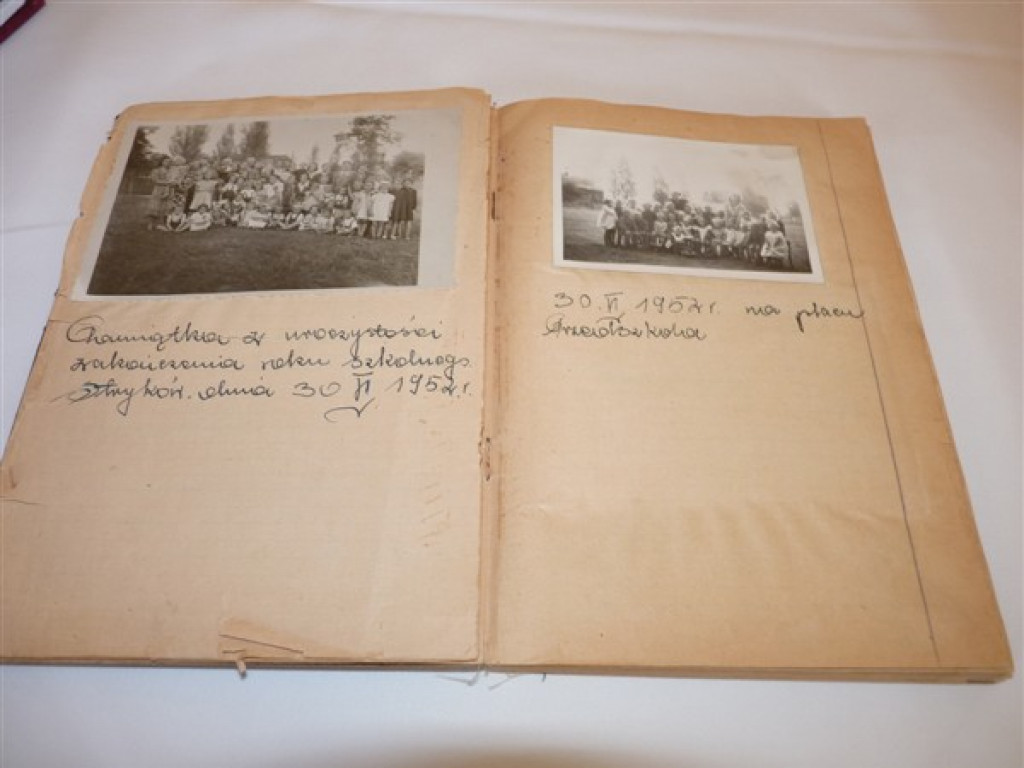 Pamiątka z uroczystości
zakończenia roku szkolnego.
Stryków. dnia 30 VI 1952r.
30. VI 1952r. na placu
Przedszkola